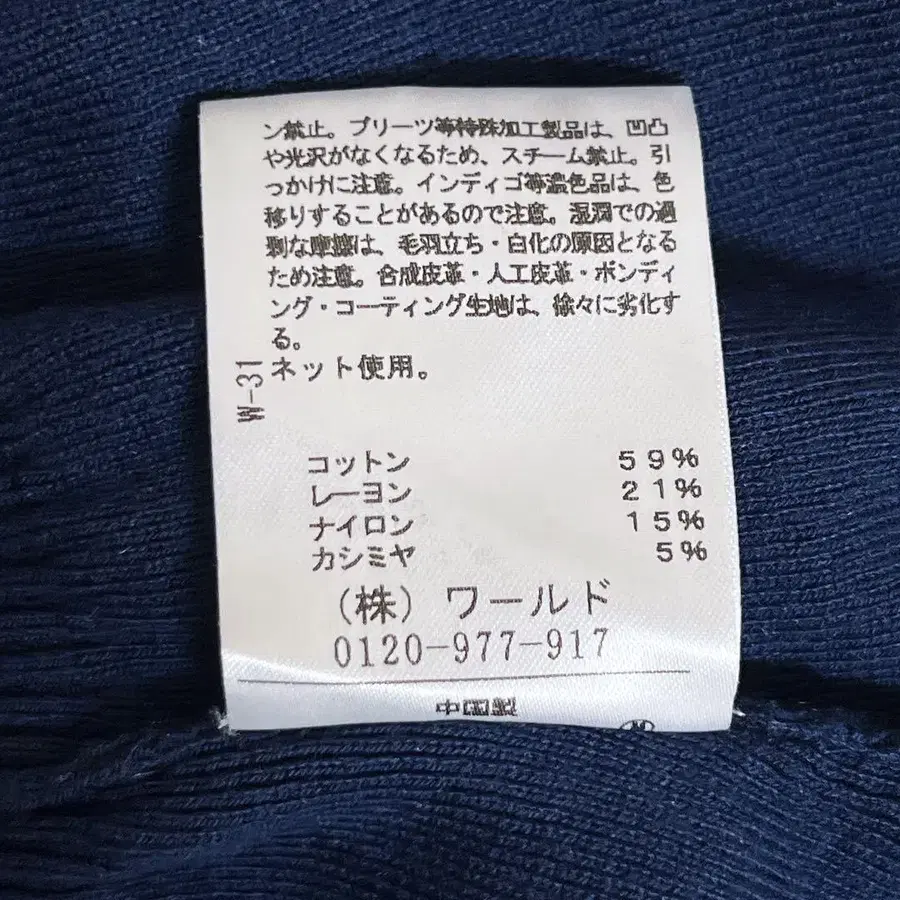 ン禁止。プリーツ等特殊加工製品は、凹凸
や光沢がなくなるため、スチーム禁止。引
っかけに注意。インディゴ等濃色品は、色
移りすることがあるので注意。湿潤での過
剰な摩擦は、毛羽立ち・白化の原因となる
ため注意。合成皮革・人工皮革・ボンディ
ング・コーティング生地は、徐々に劣化す
る。
ネット使用。
W-31
コットン 59%
レーヨン 21%
ナイロン 15%
カシミヤ 5%
(株) ワールド
0120-977-917
中国製
M